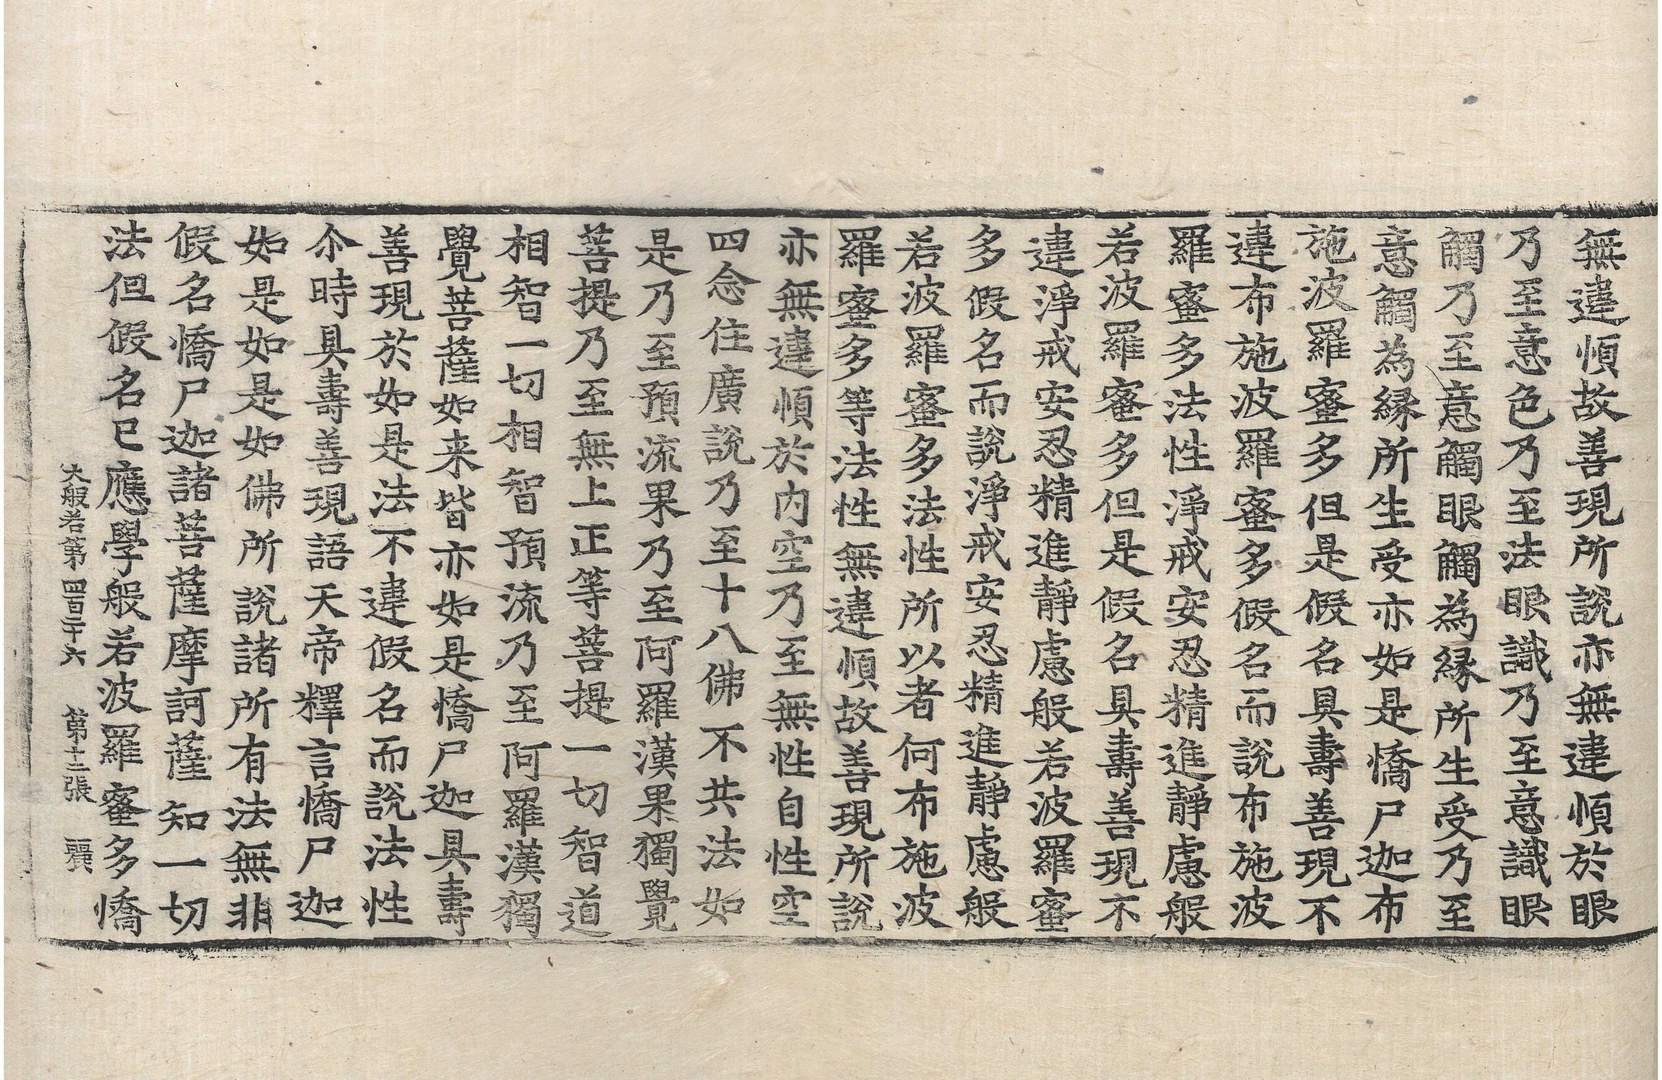 無違順故善現所說亦無違順於眼
乃至意色乃至法眼識乃至意識眼
觸乃至意觸眼觸為縁所生受乃至
意觸為縁所生受亦如是憍尸迦布
施波羅蜜多但是假名具壽善現不
違布施波羅蜜多假名而說布施波
羅蜜多法性淨戒安忍精進靜慮般
若波羅蜜多但是假名具壽善現不
違淨戒安忍精進靜慮般若波羅蜜
多假名而說淨戒安忍精進靜慮般
若波羅蜜多法性所以者何布施波
羅蜜多等法性無違順故善現所說
亦無違順於内空乃至無性自性空
四念住廣說乃至十八佛不共法如
是乃至預流果乃至阿羅漢果獨覺
菩提乃至無上正等菩提一切智道
相智一切相智預流乃至阿羅漢獨
覺菩薩如来皆亦如是憍尸迦具壽
善現於如是法不違假名而說法性
尒時具壽善現語天帝釋言憍尸迦
如是如是如佛所說諸所有法無非
假名憍尸迦諸菩薩摩訶薩知一切
法但假名已應學般若波羅蜜多憍
大般若第四百二十六 第十二張 麗